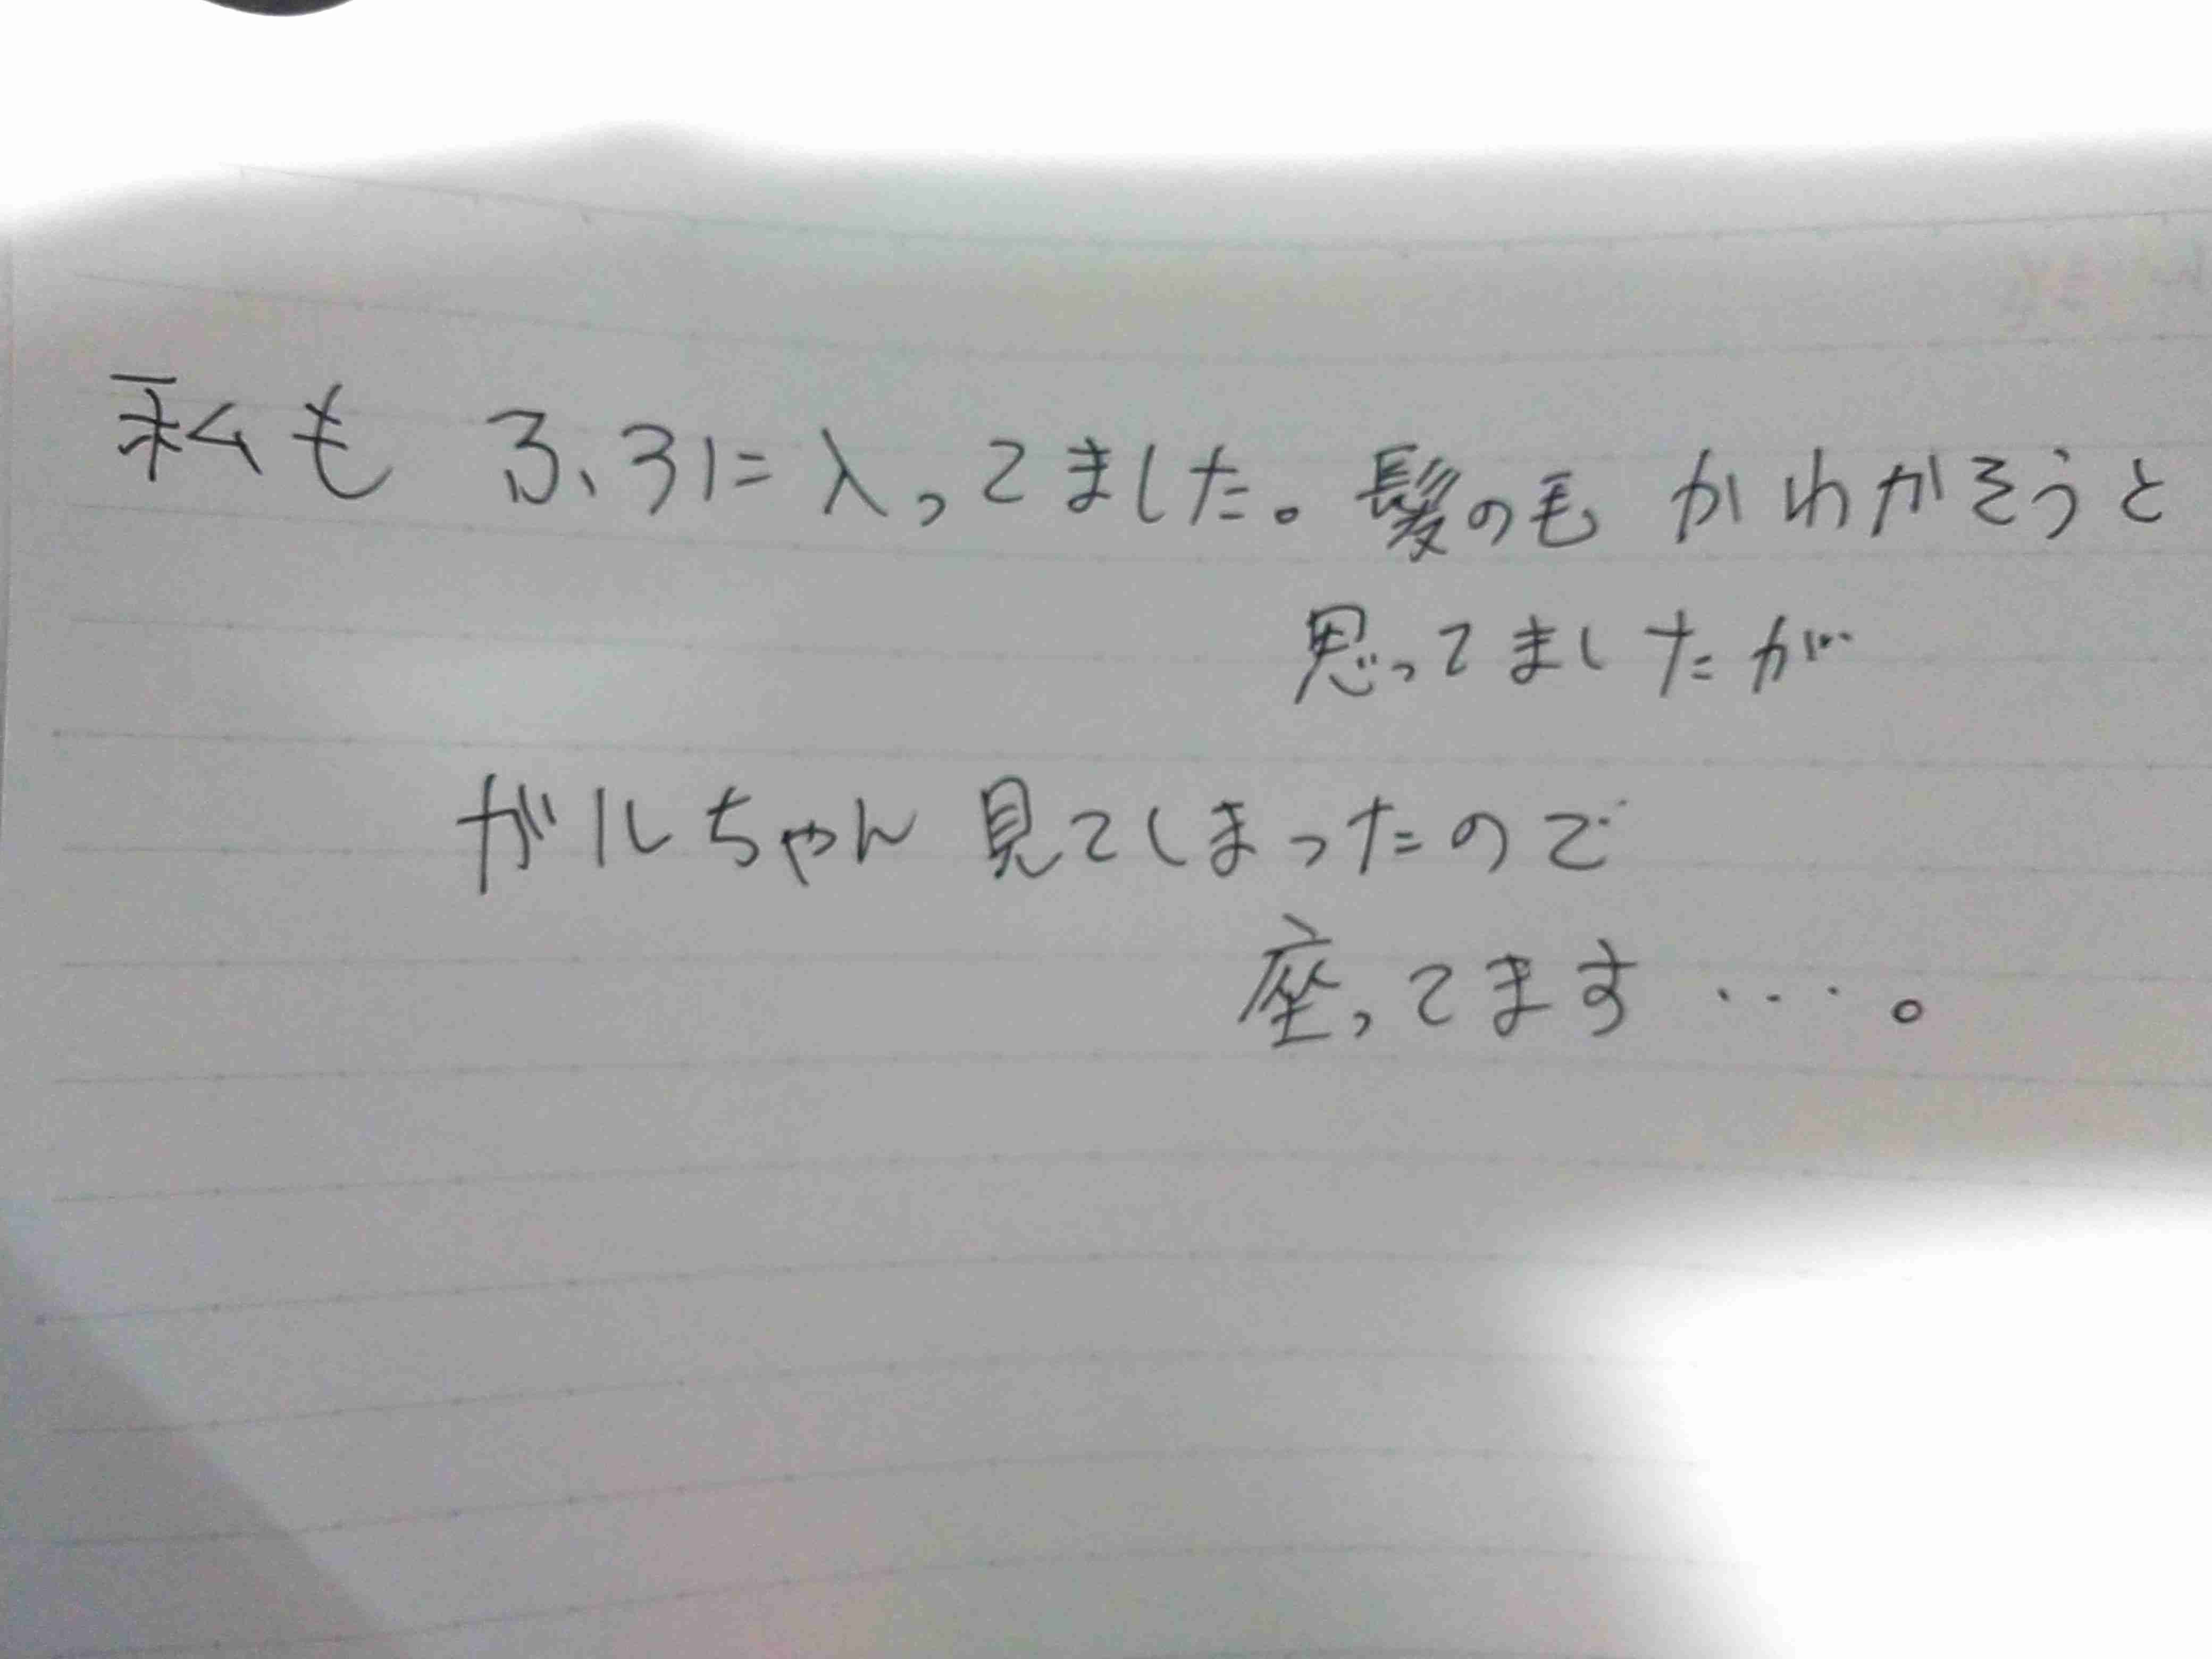 私も ふろに入ってました。髪の毛 かわかそうと
思ってましたが…
ガルちゃん見てしまったので
座ってます・・・・。